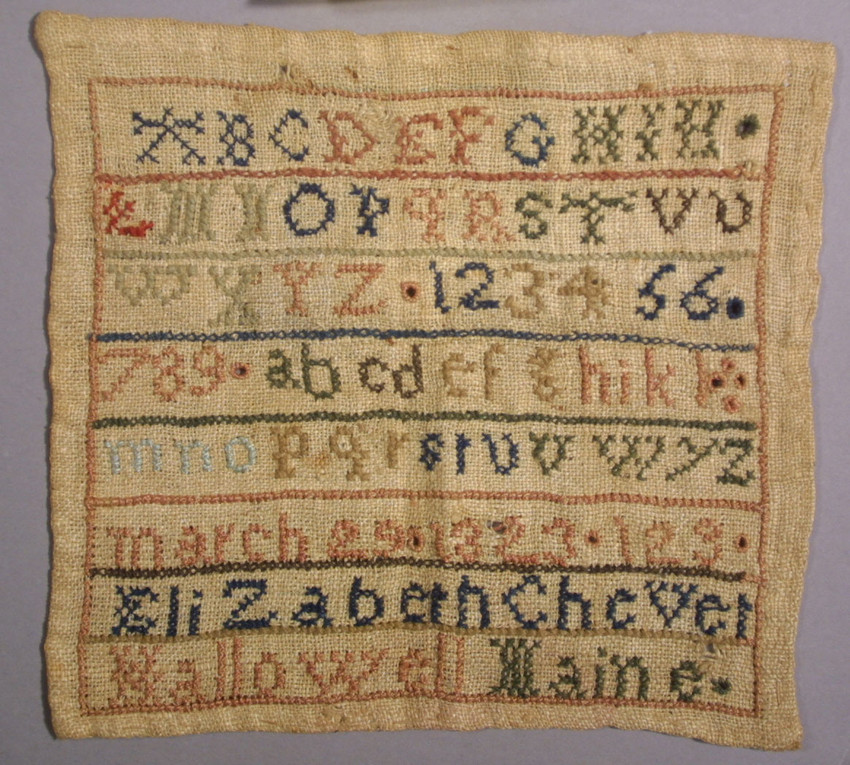 A B C D E F G H I K .
L M N O P q R S T V U
W X Y Z . 1 2 3 4 5 6 .
7 8 9 . a b c d e f g h i k l
m n o p q r s t u v w y z
march 29 . 1823 . 123 .
EliZabeth CheVer
Hallowell Maine .